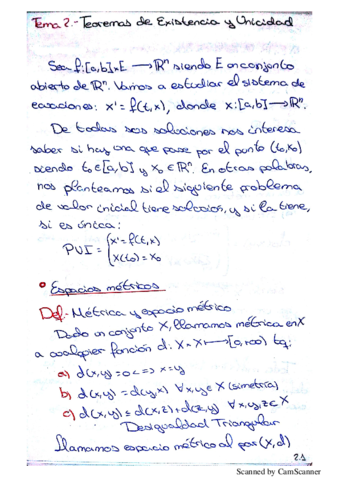 Tema 2.- Teoremas de Existencia y Unicidad
Sea f:[a,b]×E → ℝⁿ siendo E un conjunto
abierto de ℝⁿ. Vamos a estudiar el sistema de
ecuaciones: x' = f(t,x), donde x:[a,b] → ℝⁿ.
De todas sus soluciones nos interesa
saber si hay una que pase por el punto (t₀,x₀)
siendo t₀∈[a,b] y x₀∈ℝⁿ. En otras palabras,
nos planteamos si el siguiente problema
de valor inicial tiene solución, y si la tiene,
si es única:
PVI = { x' = f(t,x)
x(t₀) = x₀
• Espacios métricos
Def.- Métrica y espacio métrico
Dado un conjunto X, llamamos métrica en X
a cualquier función d: X×X → [0,+∞) tq:
a) d(x,y)=0 <=> x=y
b) d(x,y) = d(y,x) ∀x,y∈X (simetría)
c) d(x,y) ≤ d(x,z)+d(z,y) ∀x,y,z∈X
Desigualdad Triangular
Llamamos espacio métrico al par (X,d)
2.1
Scanned by CamScanner